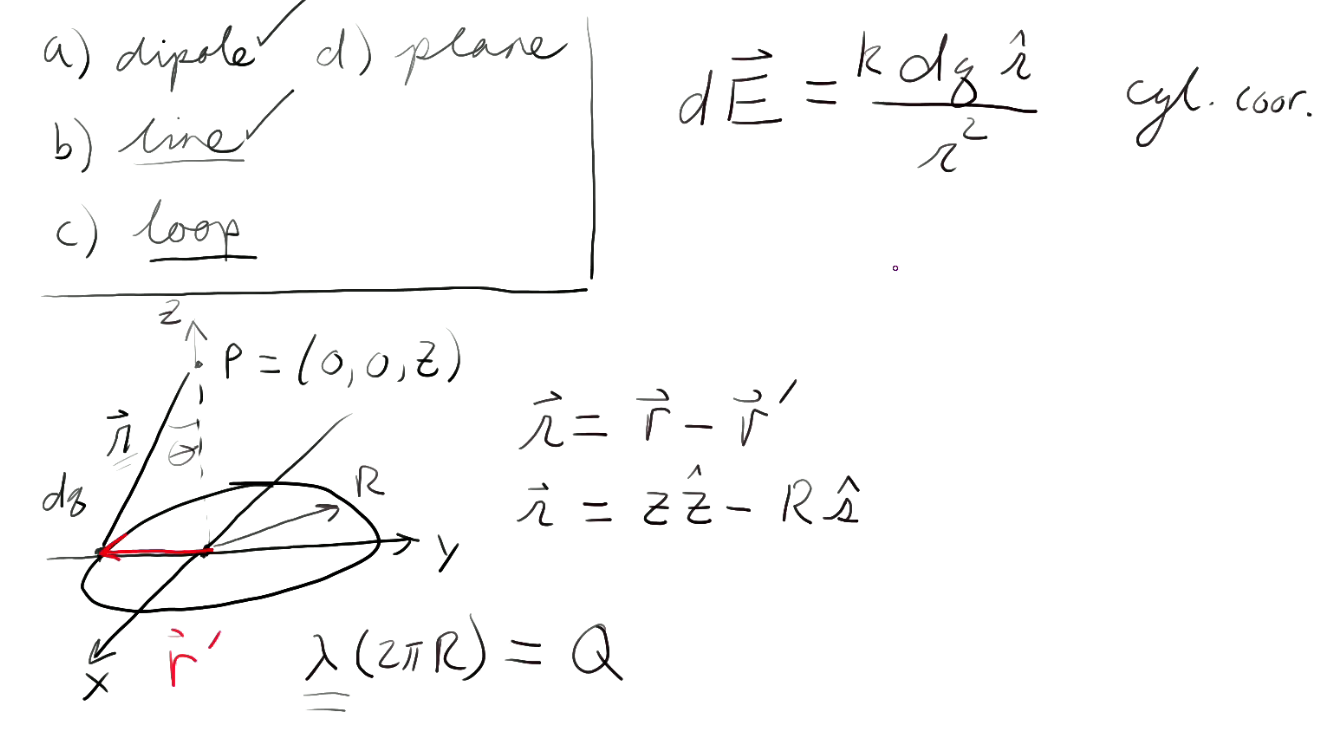 a) dipole ✓ d) plane
b) line ✓
c) loop
dE⃗ = k dq r̂ / r² cyl. coor.
z
P = (0, 0, z)
r⃗
θ
dq
R
y
x
r⃗ ′
r⃗ = r⃗ − r⃗ ′
r⃗ = z ẑ − R ŝ
λ (2πR) = Q